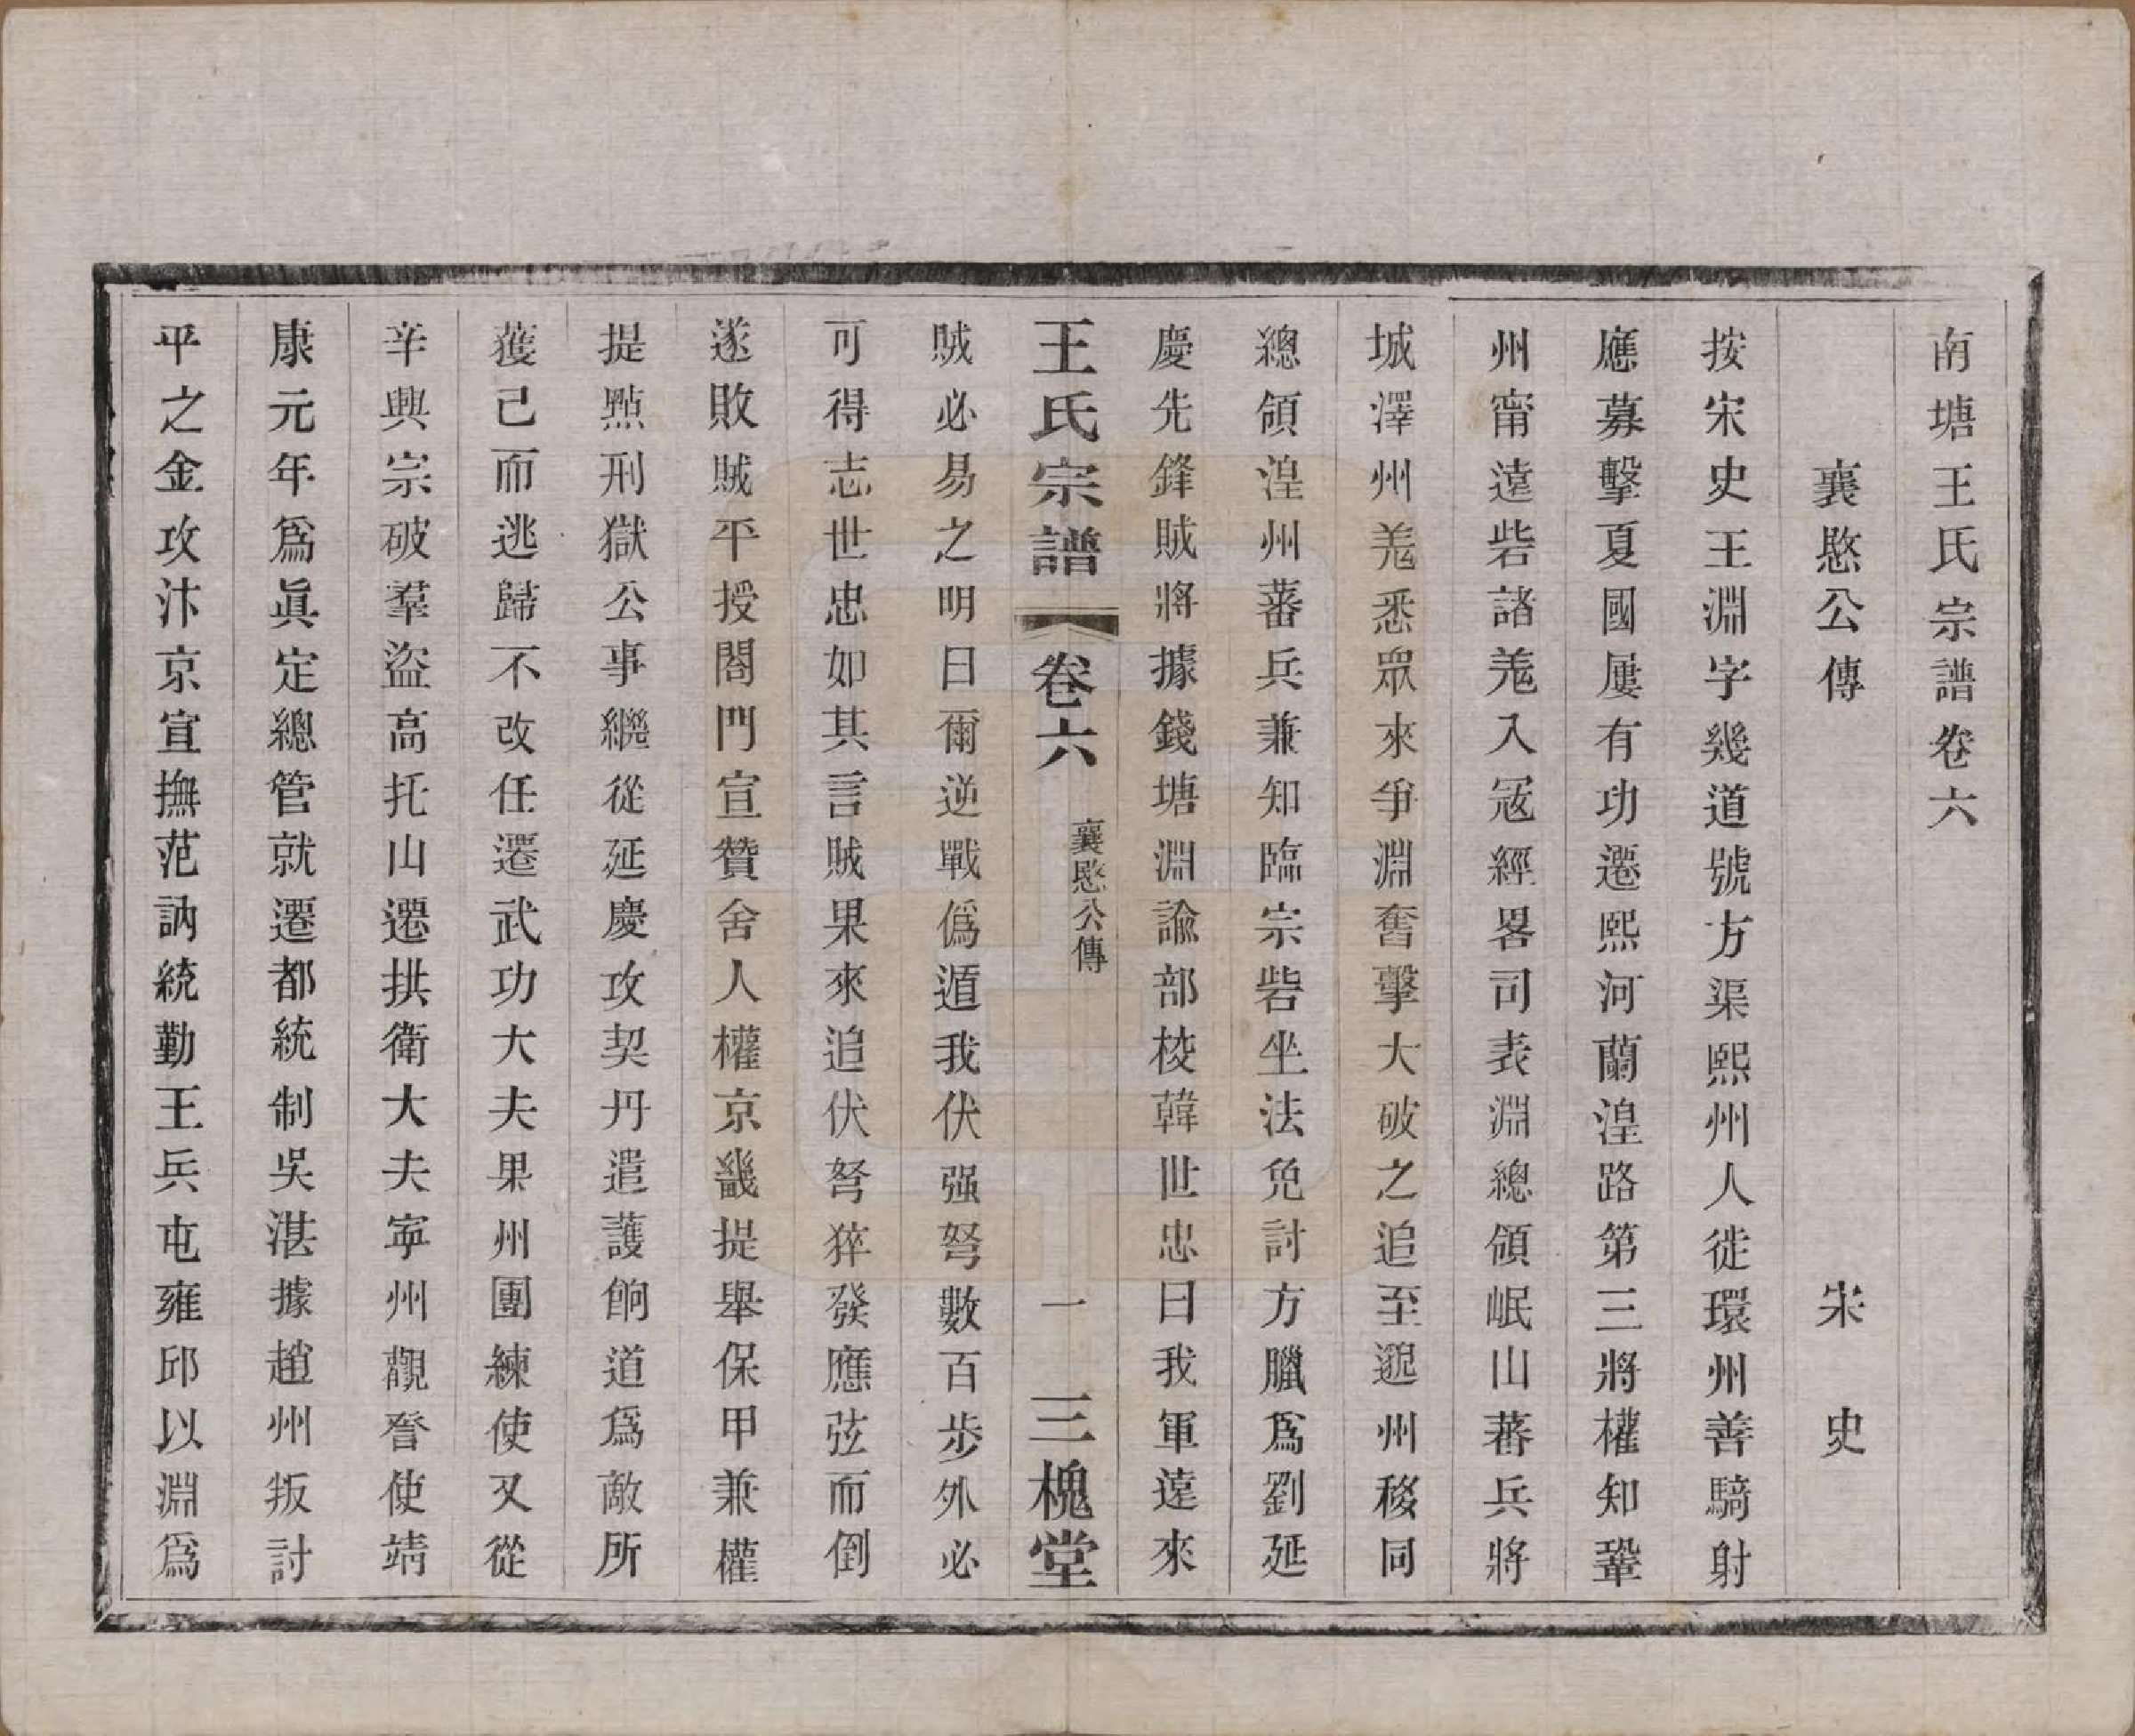 南塘王氏宗譜卷六
襄愍公傳　宋史
按宋史王淵字幾道號方渠熙州人徙環州善騎射
應募擊夏國屢有功遷熙河蘭湟路第三將權知鞏
州甯遠砦諸羗入寇經畧司表淵總領岷山蕃兵將
城澤州羗悉眾來爭淵奮擊大破之追至邈州移同
總領湟州蕃兵兼知臨宗砦坐法免討方臘爲劉延
慶先鋒賊將據錢塘淵諭部校韓世忠曰我軍遠來
王氏宗譜　卷六　襄愍公傳　一　三槐堂
賊必易之明日爾逆戰僞遁我伏强弩數百步外必
可得志世忠如其言賊果來追伏弩猝發應弦而倒
遂敗賊平授閤門宣贊舍人權京畿提舉保甲兼權
提㸃刑獄公事繼從延慶攻契丹遣護餉道爲敵所
獲已而逃歸不改任遷武功大夫果州團練使又從
辛興宗破羣盜高托山遷拱衛大夫寧州觀詧使靖
康元年爲眞定總管就遷都統制吳湛據趙州叛討
平之金攻汴京宣撫范訥統勤王兵屯雍邱以淵爲